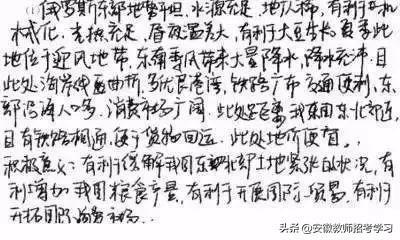 俄罗斯东部地势平坦,水源充足,地广人稀,有利于农机
械化,光热充足,昼夜温差大,有利于大豆生长,夏季此
地位于迎风地带,东南季风带来大量降水,降水充沛。且
此处海岸线曲折,多优良港湾,铁路广布交通便利,东
部沿海人口多,消费市场广阔。此处距离我国东北部近,
且有铁路相通,便于货物回运。此处地价便宜。
积极意义:有利于缓解我国东北部土地紧张的状况,有
利增加我国粮食产量,有利于开展国际贸易,有利于
开拓国际海外市场。
头条@安徽教师招考学习